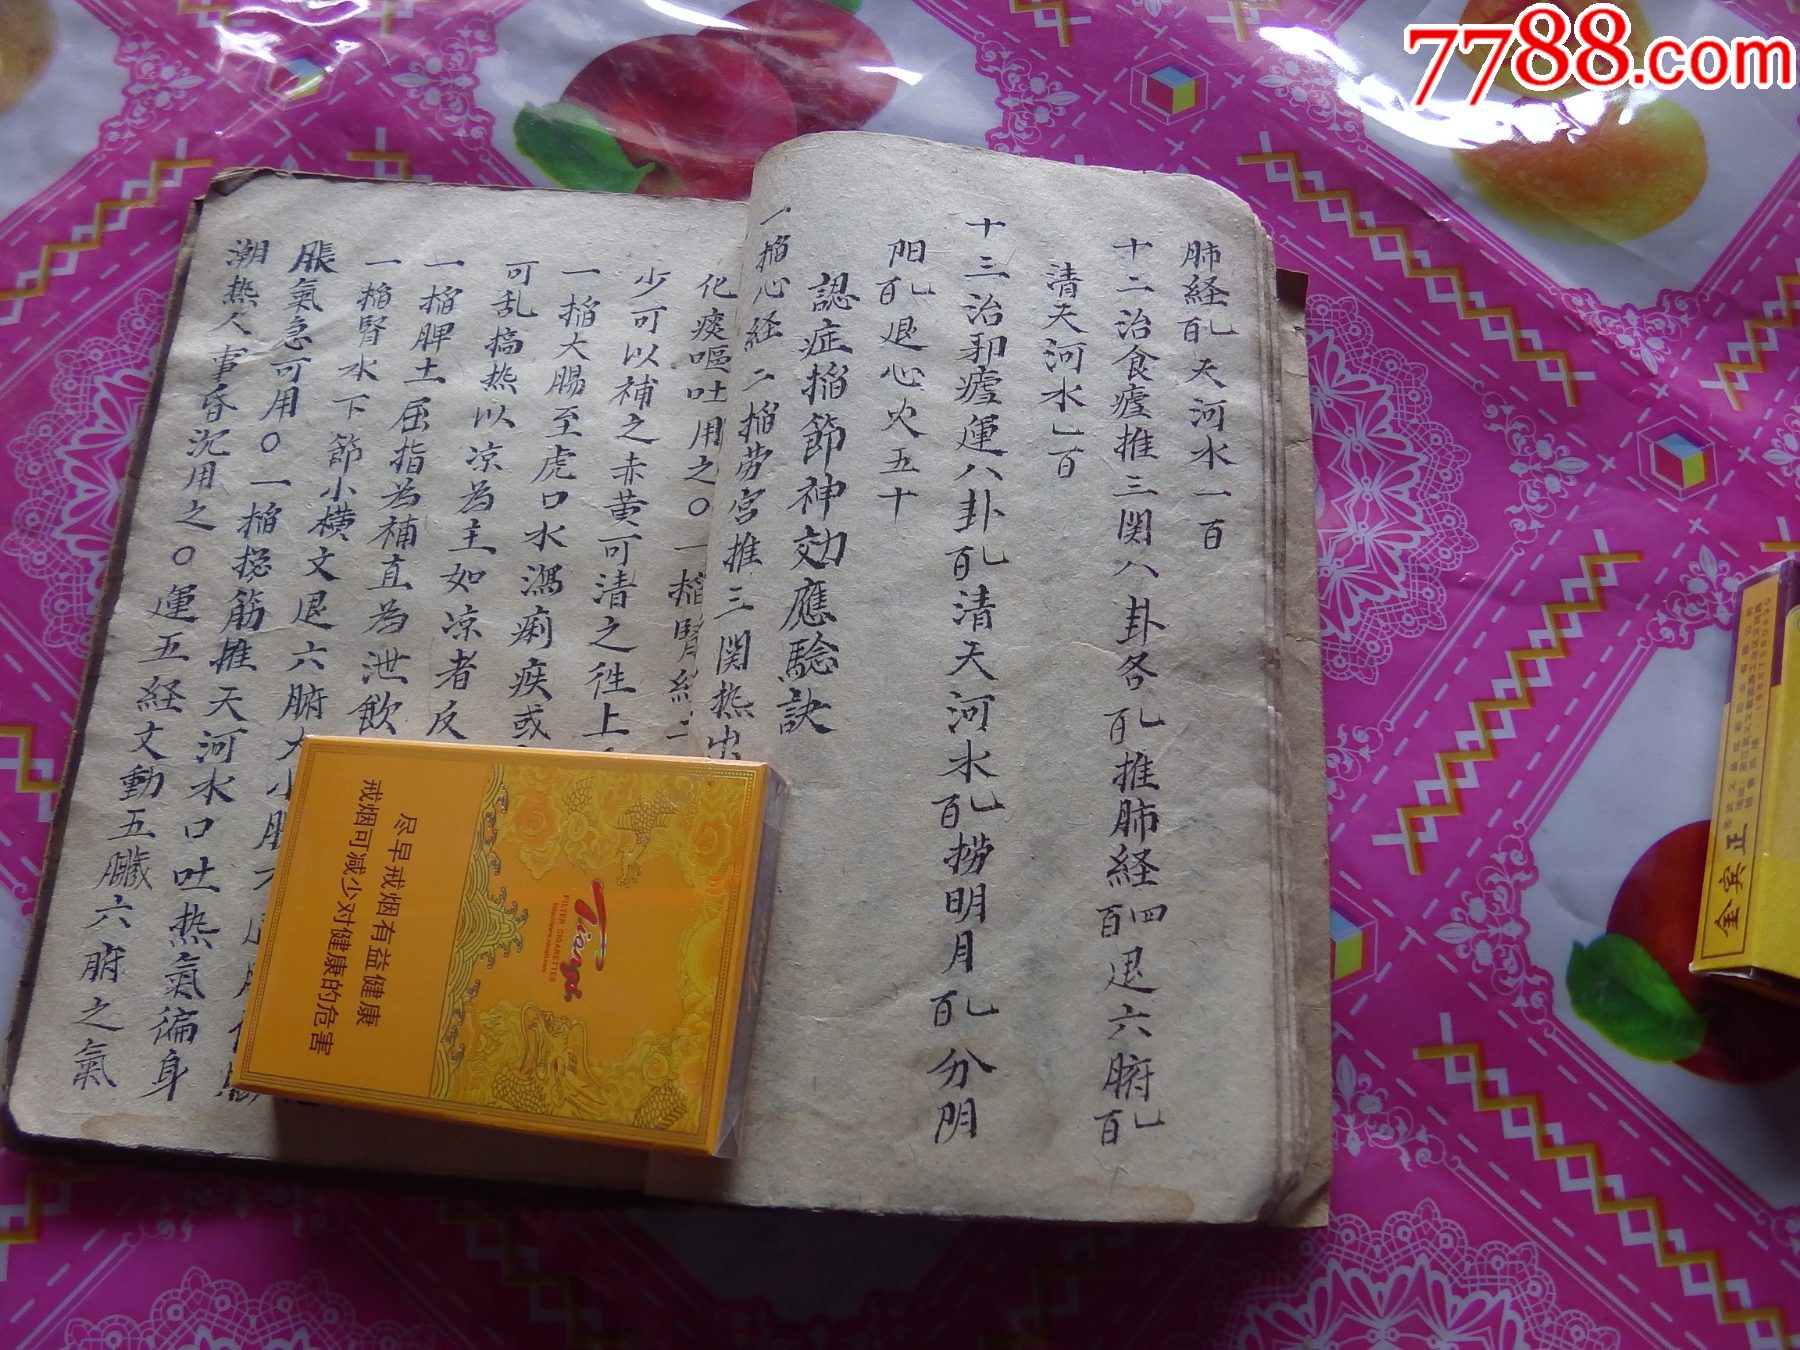 7788.com
肺経乙百天河水一百
十二治食瘧推三関八卦各乙百推肺経四百退六腑乙百
清天河水乙百
十三治邪瘧運八卦乙百清天河水乙百撈明月乙百分阴
阳乙百退心火五十
認症搯節神効應驗訣
一搯心経二搯劳宮推三関热出
化痰嘔吐用之〇一搯腎経二
少可以補之赤黄可清之徃上
一搯大腸至虎口水瀉痢疾或
可乱搞热以凉為主如凉者反
一搯脾土屈指為補直為泄飲
一搯腎水下節小横文退六腑大小
脹氣急可用〇一搯揔筋推天河水口吐热氣徧身
潮热人事昏沉用之〇運五経文動五臟六腑之氣
尽早戒烟有益健康
戒烟可减少对健康的危害
FILTER CIGARETTES
金宾正